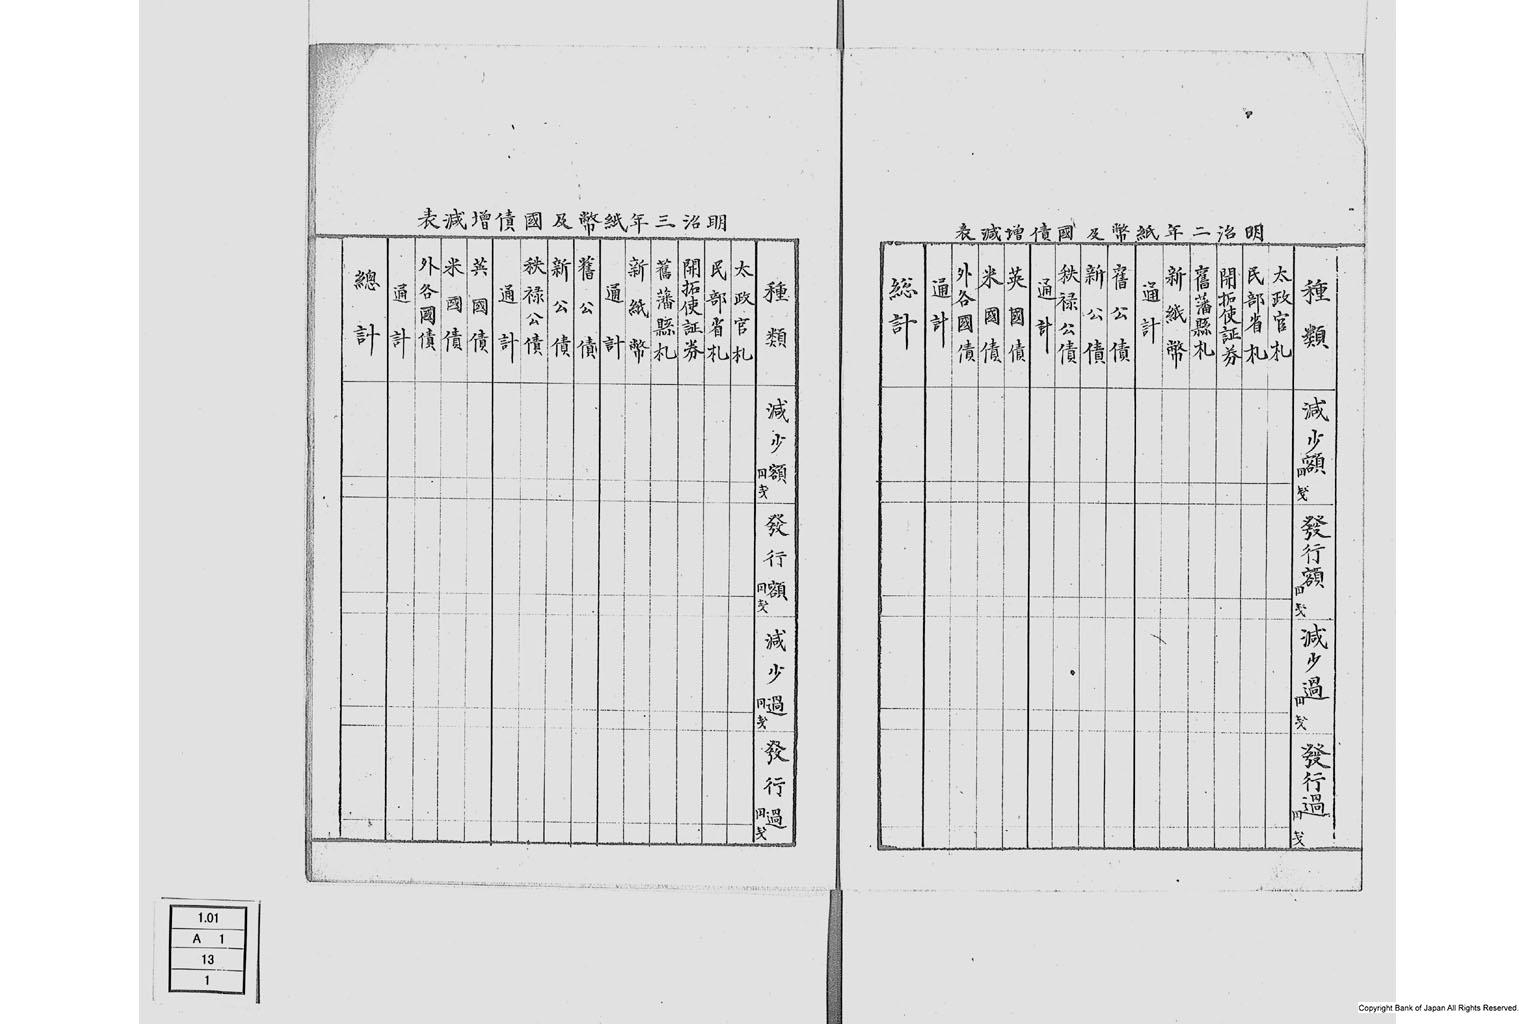 明治二年紙幣及國債増減表
種類
減少額
円 戔
發行額
円 戔
減少過
円 戔
發行過
円 戔
太政官札
民部省札
開拓使証券
舊藩縣札
新紙幣
通計
舊公債
新公債
秩禄公債
通計
英國債
米國債
外各國債
通計
総計
明治三年紙幣及國債増減表
種類
減少額
円 戔
發行額
円 戔
減少過
円 戔
發行過
円 戔
太政官札
民部省札
開拓使証券
舊藩縣札
新紙幣
通計
舊公債
新公債
秩禄公債
通計
英國債
米國債
外各國債
通計
總計
1.01
A 1
13
1
Copyright Bank of Japan All Rights Reserved.